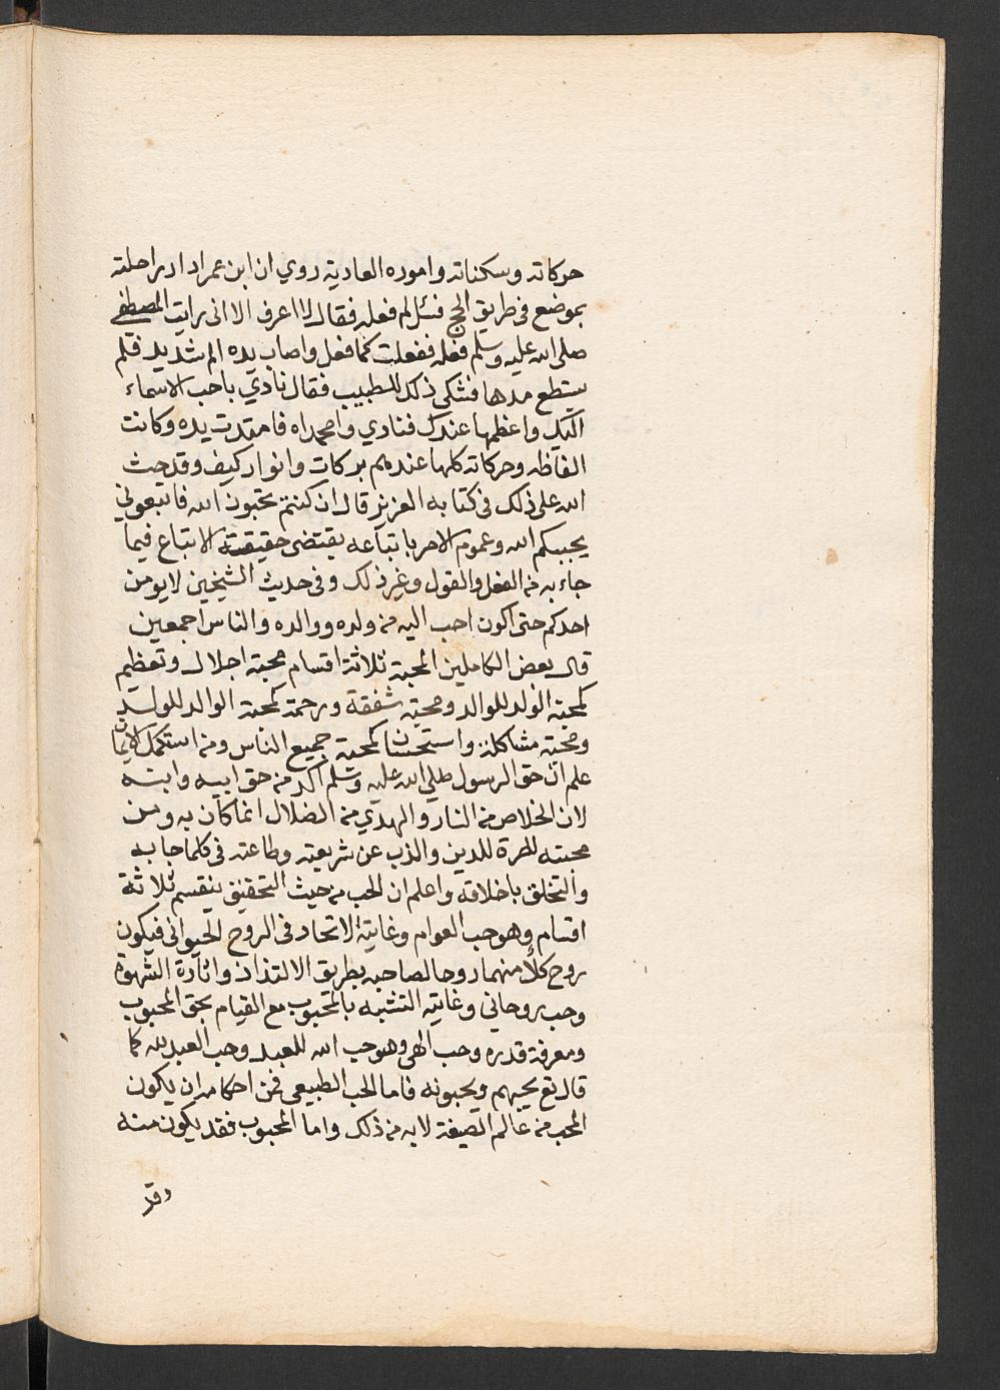 حركاته وسكناته واموره العادية روي ان ابن عمر ادار راحلته
بموضع فى طريق الحج فسئل لم فعله فقال لا اعرف الا انى رايت المصطفى
صلى الله عليه وسلم فعله ففعلت كما فعل واصاب يده الم شديد فلم
يستطع مدها فشكى ذلك للطبيب فقال نادي باحب الاسماء
اليك واعظمها عندك فنادي وامحمداه فامتدت يده وكانت
الفاظه وحركاته كلها عندهم بركات وانوار كيف وقد حث
الله على ذلك فى كتابه العزيز قال ان كنتم تحبون الله فاتبعوني
يحببكم الله وعموم الامر باتباعه يقتضى حقيقة الاتباع فيما
جاء به من الفعل والقول وغير ذلك وفى حديث الشيخين لا يومن
احدكم حتى اكون احب اليه من ولده ووالده والناس اجمعين
قال بعض الكاملين المحبة ثلاثة اقسام محبة اجلال وتعظيم
كمحبة الولد للوالد ومحبة شفقة ورحمة كمحبة الوالد للولد
ومحبة مشاكلة واستحسان كمحبة جميع الناس ومن استكمل الايمان
علم ان حق الرسول صلي الله عليه وسلم اكد من حق ابيه وابنه
لان الخلاص من النار والهدي من الضلال انما كان به ومن
محبته للدين والذب عن شريعته وطاعته فى كلما جا به
والتخلق باخلاقه واعلم ان الحب من حيث التحقيق ينقسم ثلاثة
اقسام وهو حب العوام وغايته الاتحاد فى الروح الحيوانى فيكون
روح كلاً منهما روحا لصاحبه بطريق الالتذاذ واثارة الشهوة
وحب روحاني وغايته التشبه بالمحبوب مع القيام بحق المحبوب
ومعرفة قدره وحب الهى وهو حب الله للعبد وحب العبد لله كما
قال تع يحبهم ويحبونه فاما الحب الطبيعى فمن احكامه ان يكون
المحب من عالم الصيغة لا به من ذلك واما المحبوب فقد يكون منه
وقد